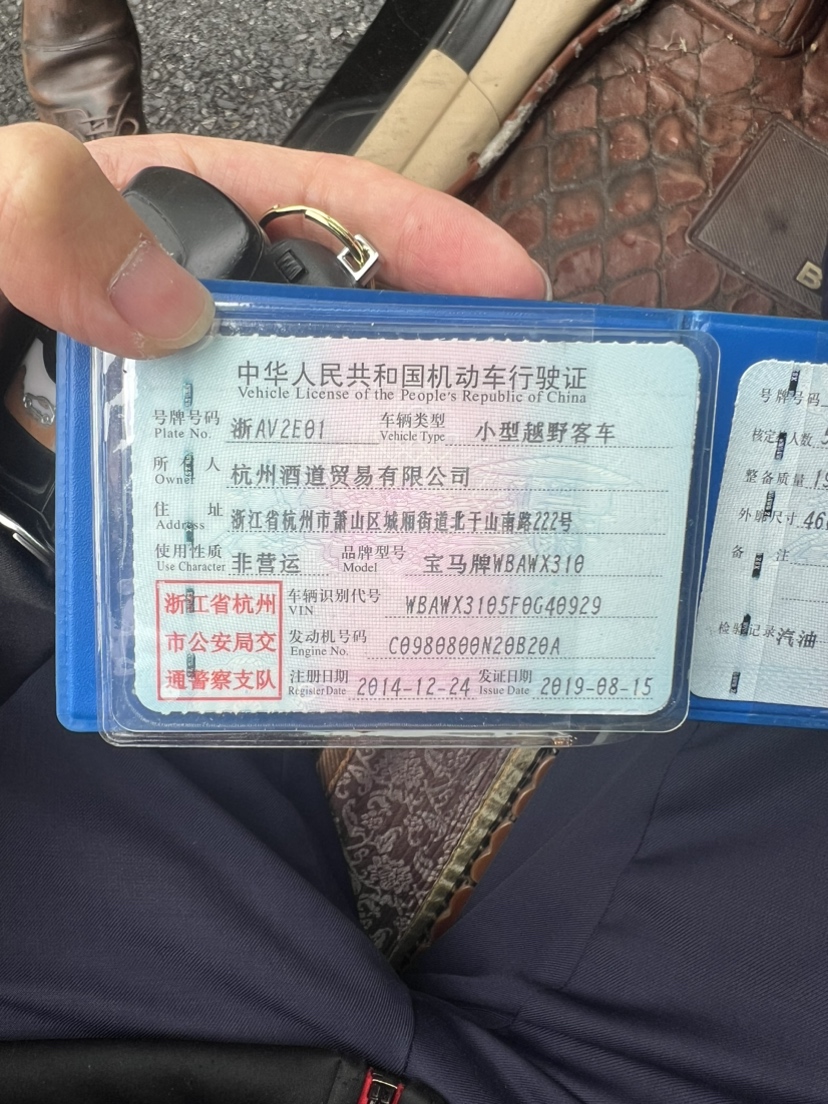 中华人民共和国机动车行驶证
Vehicle License of the People's Republic of China
号牌号码 浙AV2E01 车辆类型 小型越野客车
Plate No. Vehicle Type
所有人 杭州酒道贸易有限公司
Owner
住址 浙江省杭州市萧山区城厢街道北干山南路222号
Address
使用性质 非营运 品牌型号 宝马牌WBAWX310
Use Character Model
浙江省杭州
市公安局交
通警察支队
车辆识别代号 WBAWX3105F0G40929
VIN
发动机号码 C0980800N20B20A
Engine No.
注册日期 2014-12-24 发证日期 2019-08-15
Register Date Issue Date
号牌号码
核定 人数
整备质量
外廓尺寸 46
备注
检验记录 汽油
B